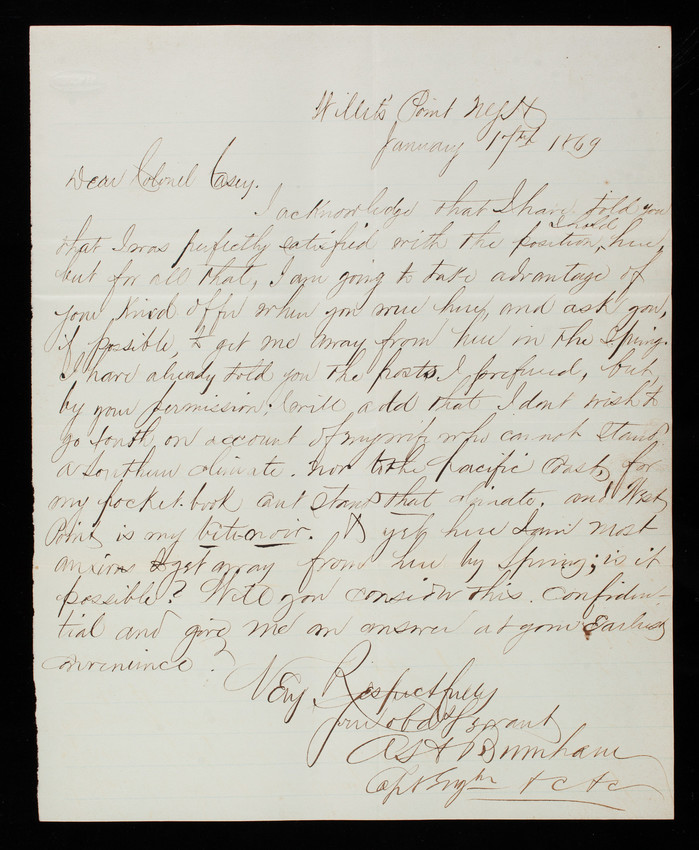 Willets Point NYH
January 17th 1869
Dear Colonel Casey.
I acknowledge that I have told you
that I was perfectly satisfied with the position, here,
but for all that, I am going to take advantage of
your kind offer when you were here, and ask you,
if possible, to get me away from here in the Spring.
I have already told you the posts I prefered, but
by your permission, I will add that I dont wish to
go South, on account of my wife who cannot stand
a Southern climate. nor to the Pacific coast, for
my pocket-book cant stand that climate. and West
Point is my bete-noir. yet here I am most
anxious to get away from here by Spring; is it
possible? Will you consider this confiden-
tial and give me an answer at your Earliest
convenience?
Very Respectfully
your obdt Servant
A S H Burnham
Capt Engrs &c &c